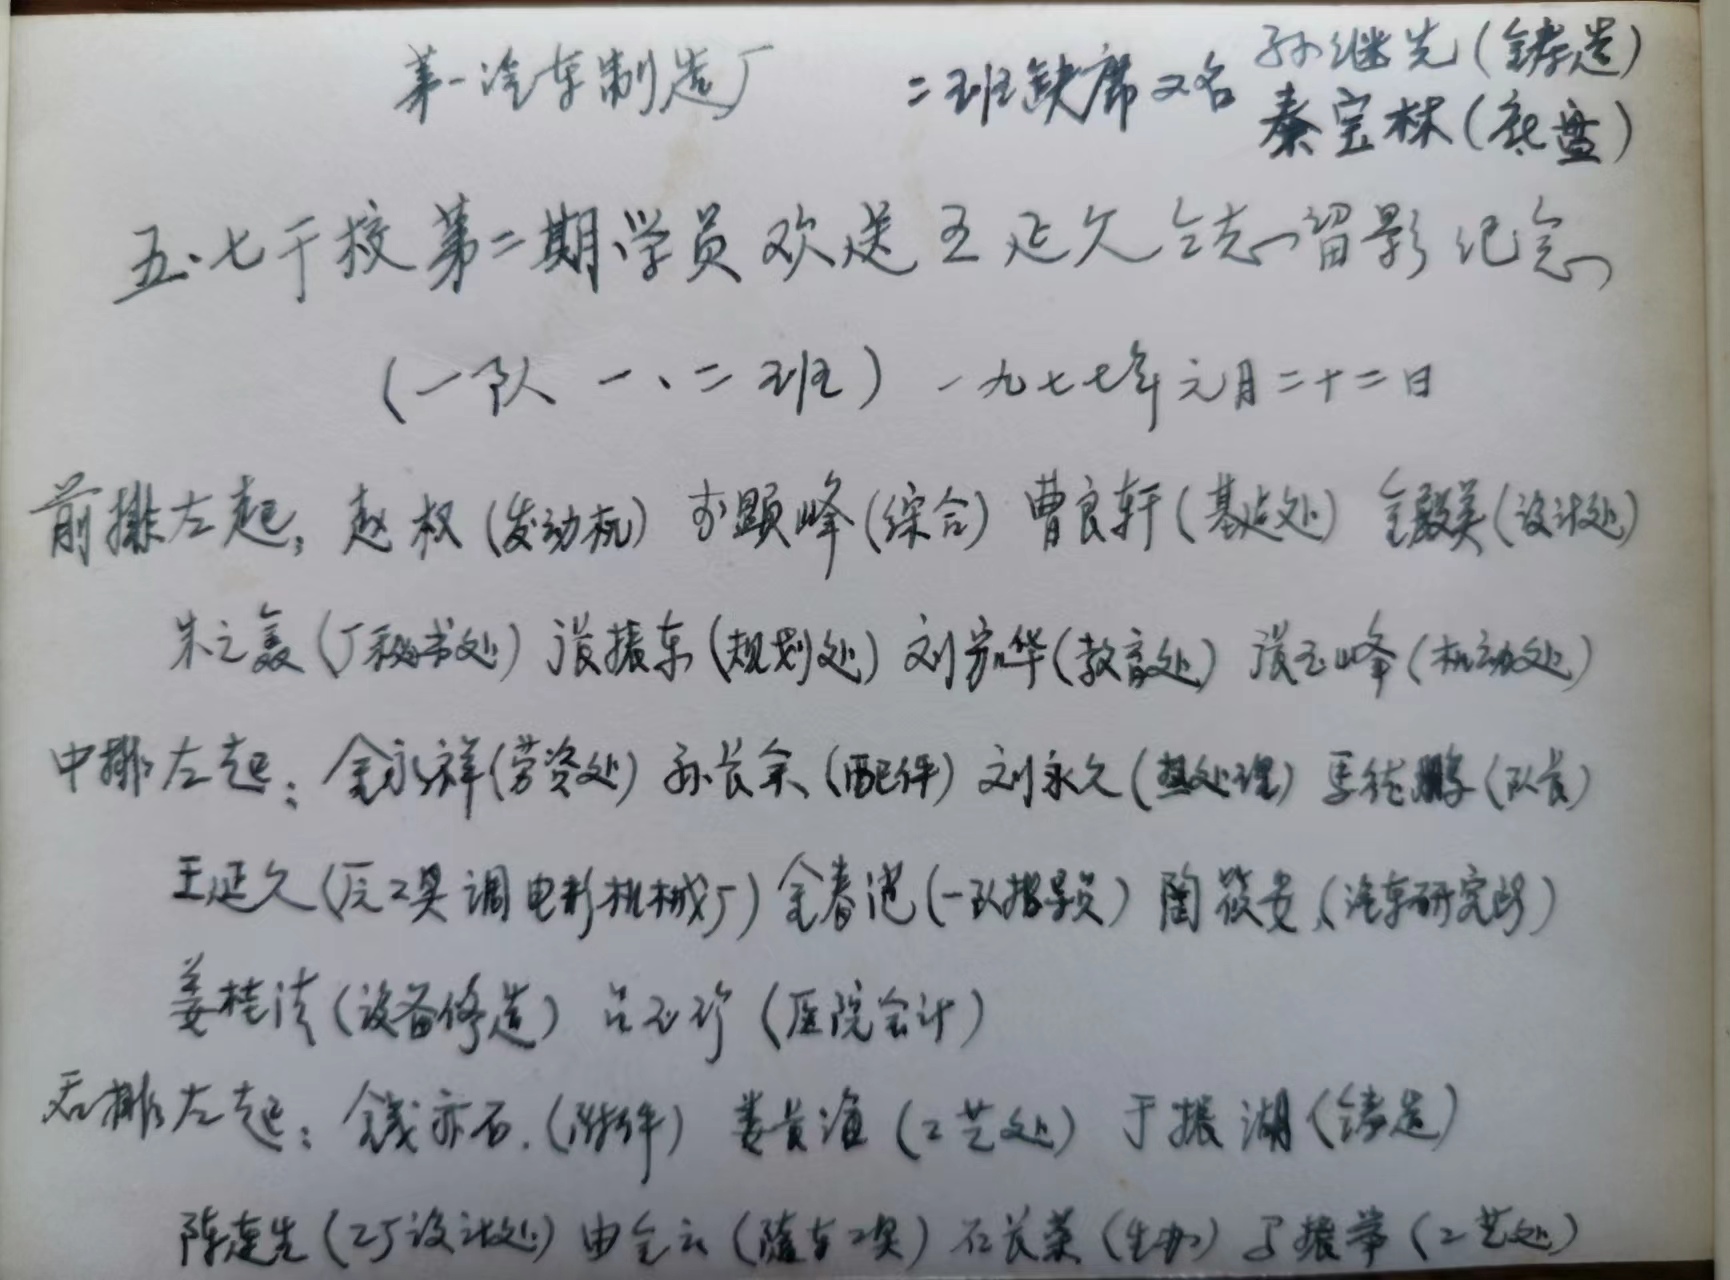 第一汽车制造厂 二班缺席又名 孙继先(铸造)
秦宝林(底盘)
五·七干校第二期学员欢送王延久同志留影纪念
(一队 一、二班) 一九七七年元月二十二日
前排左起: 赵权(发动机) 李显峰(综合) 曹良轩(基出处) 金殿英(设计处)
朱之(厂秘书处) 张振东(规划处) 刘芳华(教育处) 张玉峰(机动处)
中排左起: 金永祥(劳资处) 孙长余(配件) 刘永久(热处理) 马德鹏(队长)
王延久(后工具调电影机械厂) 金春池(一队指导员) 陶筱安(汽车研究所)
姜桂清(设备修造) 吕玉珍(医院会计)
后排左起: 钱亦石.(附件) 娄贵渔(工艺处) 于振湖(铸造)
陈连先(工厂设计处) 由全云(随车工具) 石长荣(生办) 振常(工艺处)